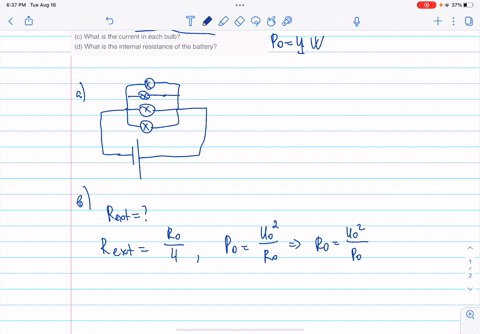 6:37 PM Tue Aug 16
37%
(c) What is the current in each bulb?
(d) What is the internal resistance of the battery?
P0 = 4 W
a)
b)
Rext = ?
Rext = R0/4 , P0 = U0²/R0 => R0 = U0²/P0
1
2